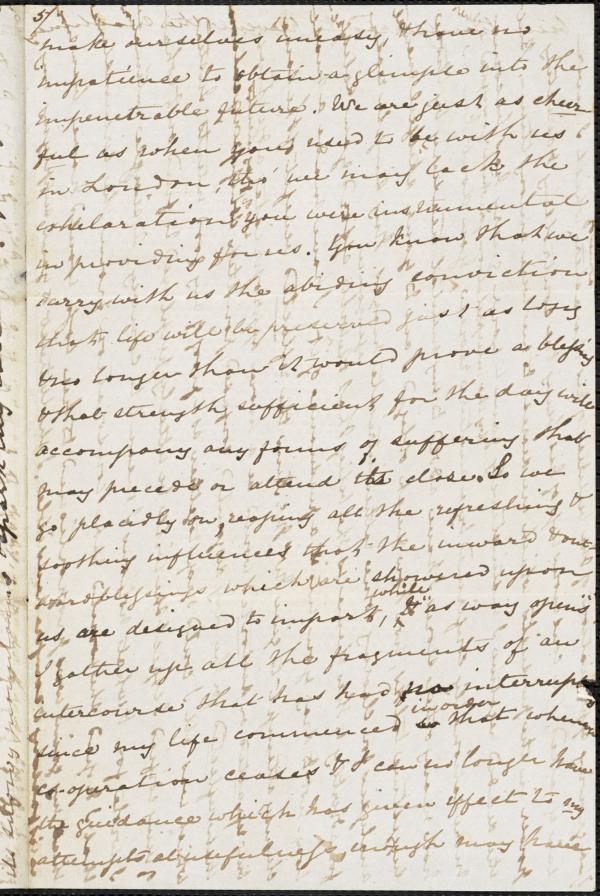 5/
make ourselves uneasy, & have no
impatience to obtain a glimpse into the
impenetrable future. We are just as cheer
ful as when you used to be with us
in London, tho' we may lack the
exhilaration you were instrumental
in providing for us. You know that we
carry with us the abiding conviction
that life will be preserved just as long
& no longer than it would prove a blessing
& that strength sufficient for the day will
accompany any forms of suffering that
may precede or attend its close. So we
go placidly on, reaping all the refreshing &
soothing influences that the inward & out-
ward blessings which are showered upon
us are designed to impart, while & "as way opens"
I gather up all the fragments of an
intercourse that has had no interruption
since my life commenced in order that when
co-operation ceases & I can no longer have
the guidance which has given effect to my
attempts at usefulness enough may